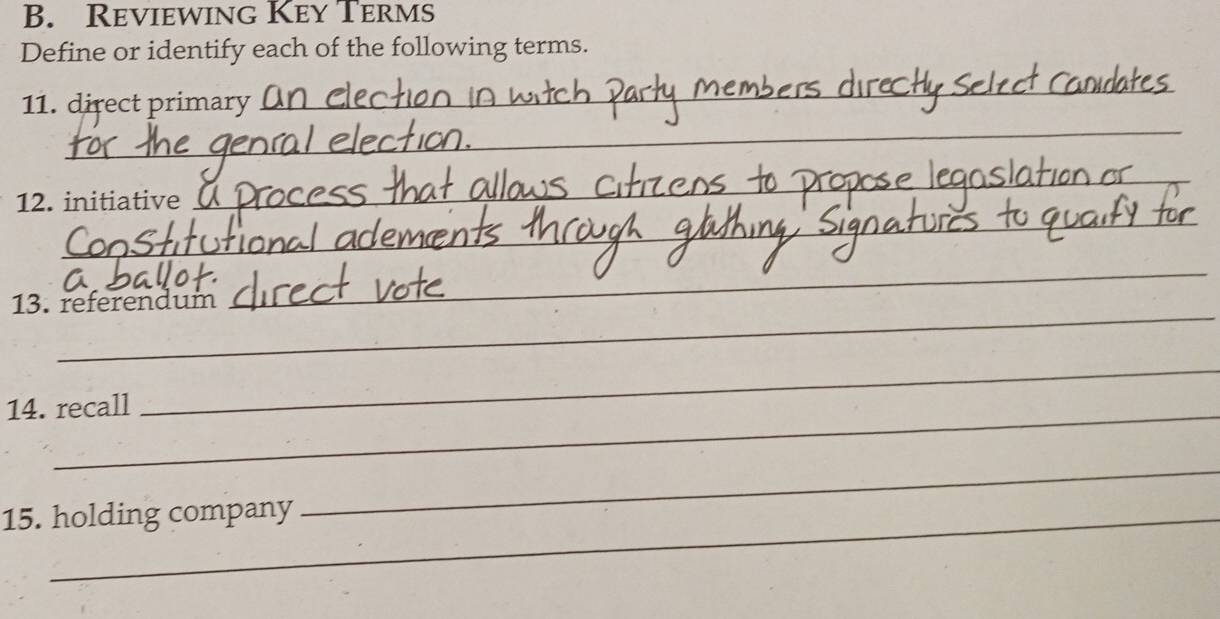 B. REVIEWING KEY TERMS
Define or identify each of the following terms.
11. direct primary an election in witch party members directly select canidates
for the genral election.
12. initiative a process that allows citizens to propose legaslation or
Constitutional adements through gathing signatures to quaify for
a ballot.
13. referendum direct vote
14. recall
15. holding company